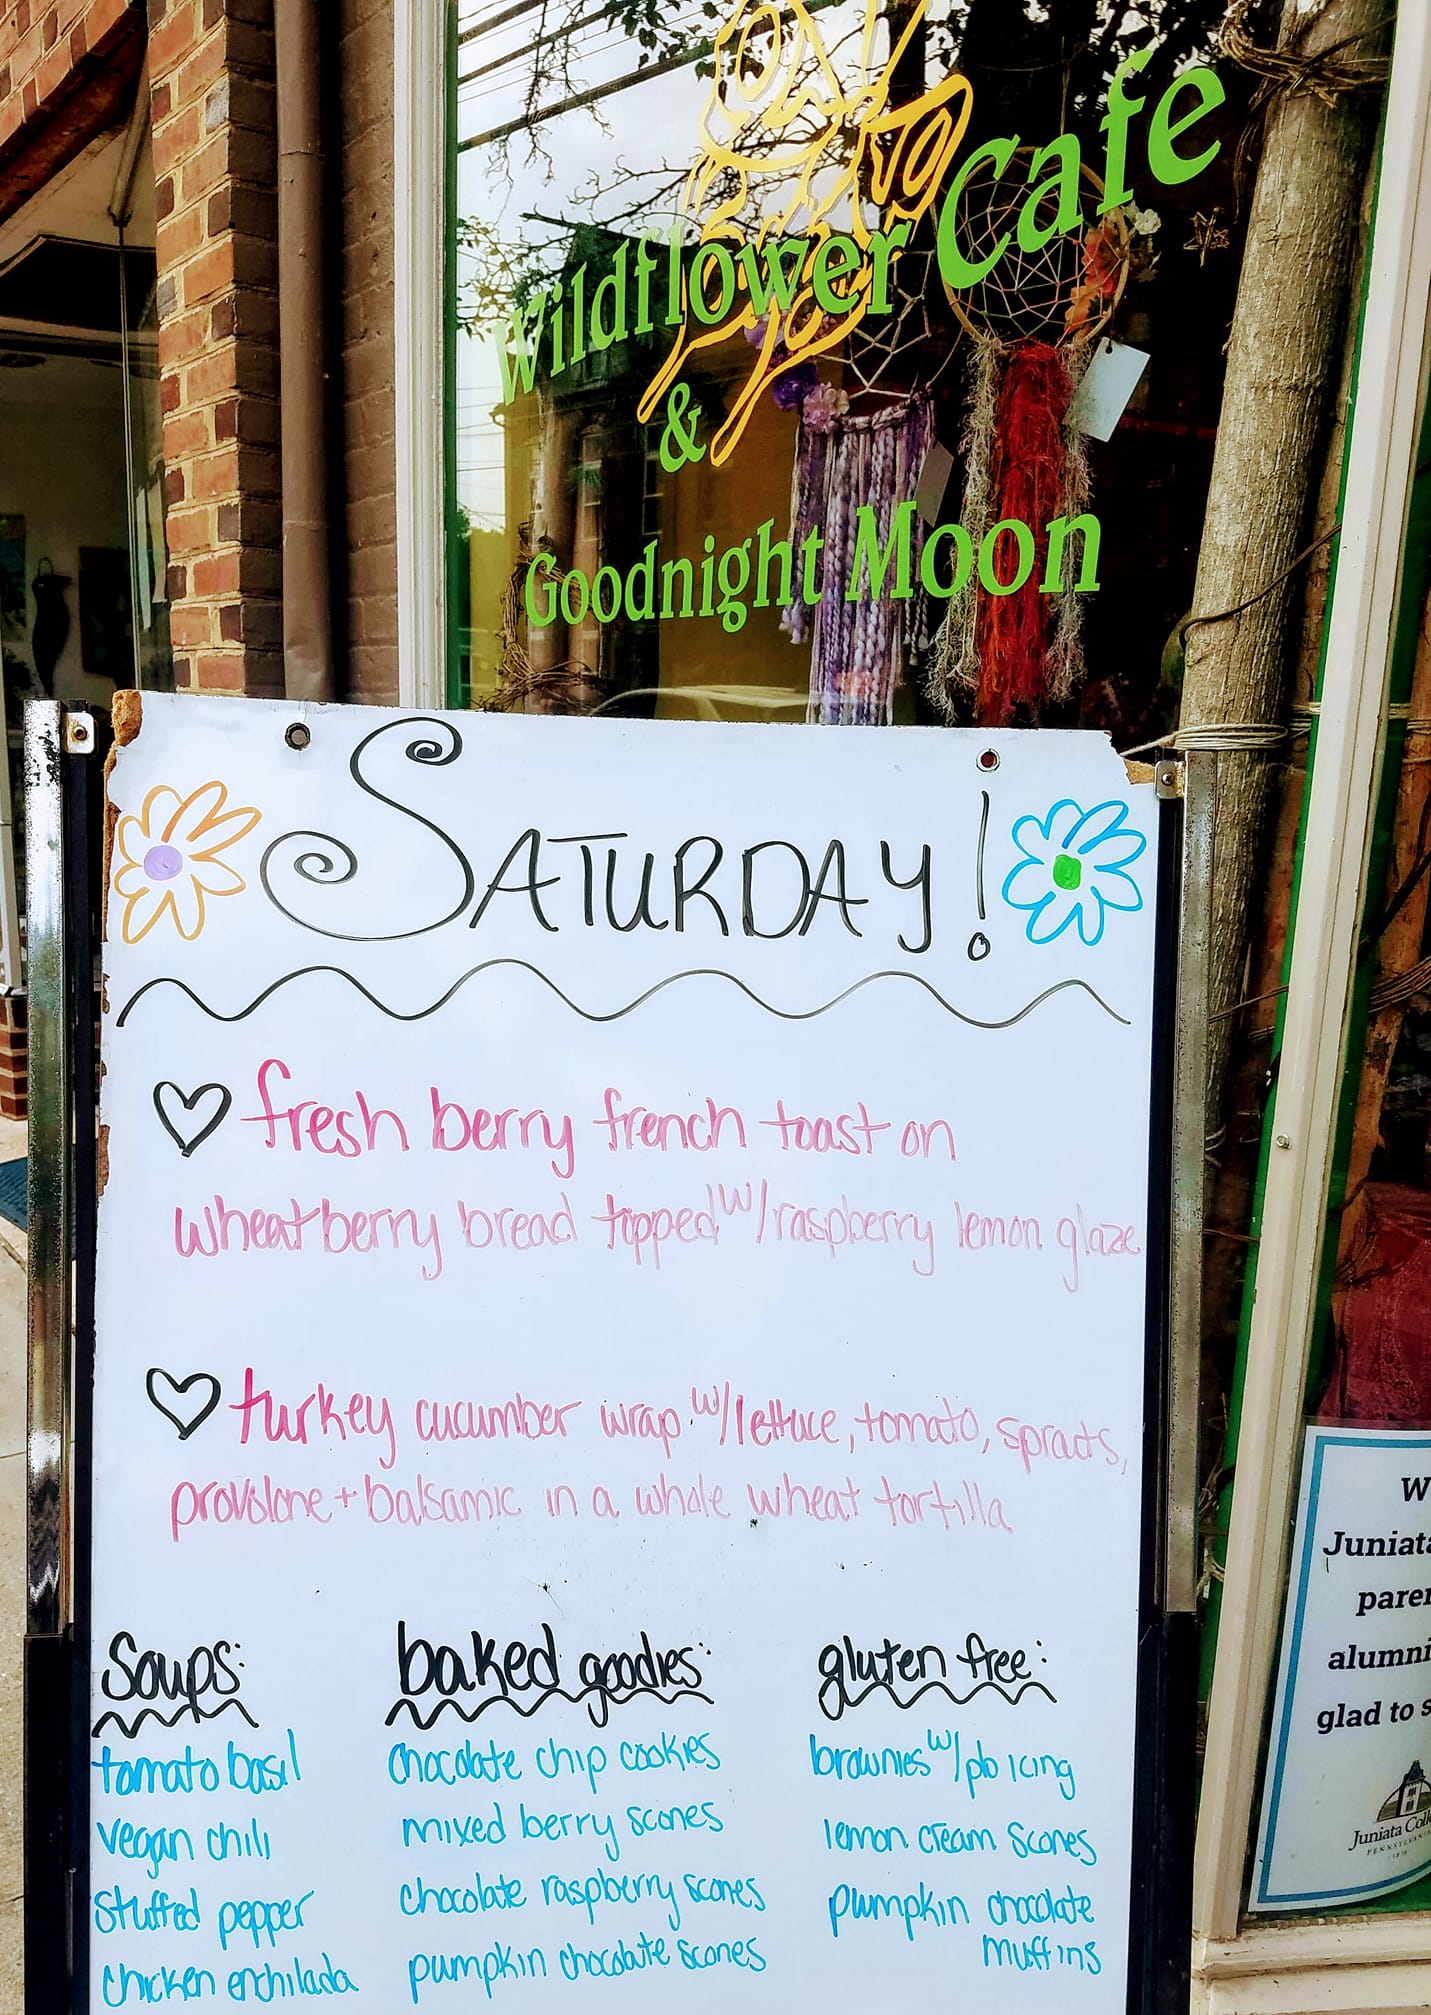 Wildflower Cafe
&
Goodnight Moon
SATURDAY!
fresh berry french toast on
wheatberry bread topped w/ raspberry lemon glaze
turkey cucumber wrap w/ lettuce, tomato, sprouts,
provolone + balsamic in a whole wheat tortilla
Soups:
tomato basil
vegan chili
stuffed pepper
chicken enchilada
baked goodies:
chocolate chip cookies
mixed berry scones
chocolate raspberry scones
pumpkin chocolate scones
gluten free:
brownies w/ pb icing
lemon cream scones
pumpkin chocolate
muffins
W
Juniata
paren
alumni
glad to s
Juniata Coll
PENNSYLVANIA
1876